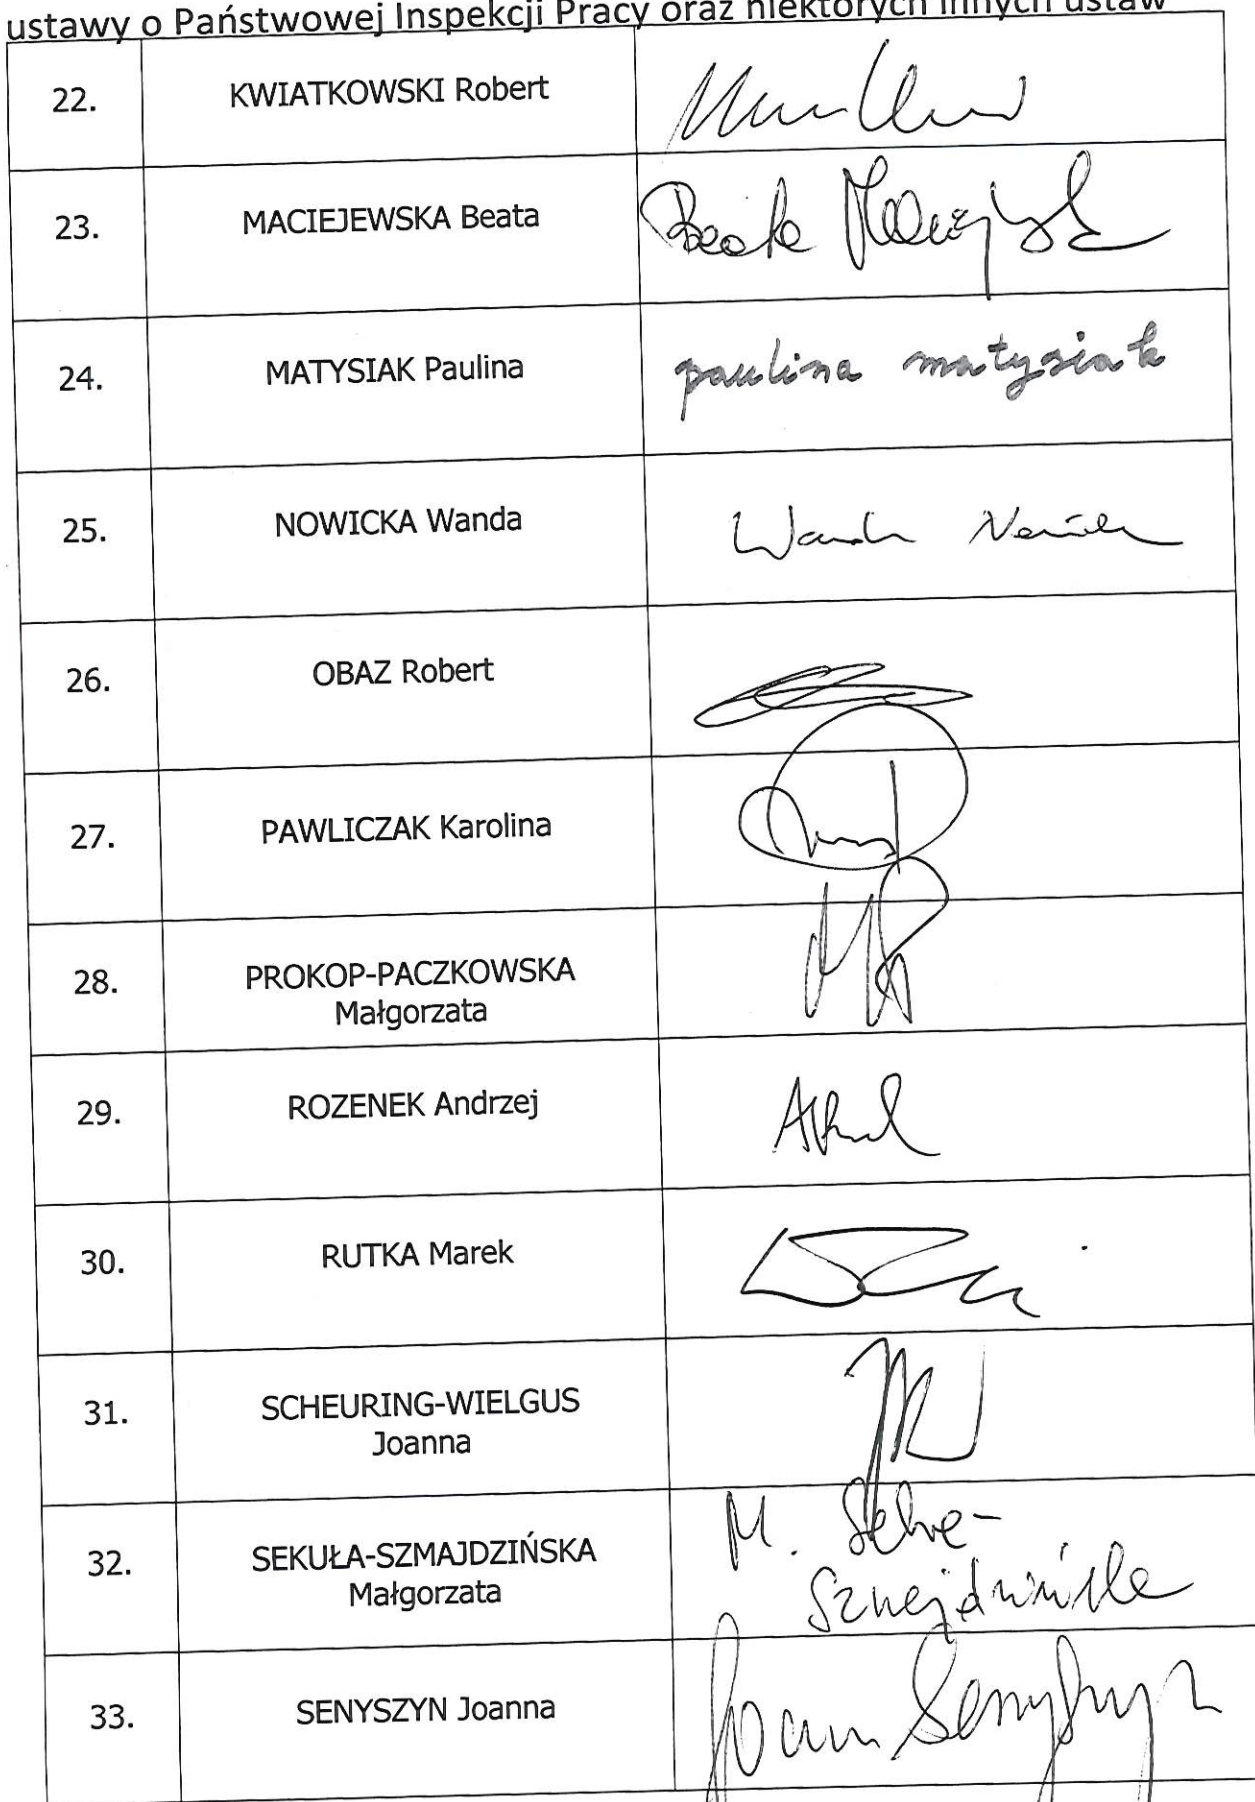 ustawy o Państwowej Inspekcji Pracy oraz niektórych innych ustaw
22. KWIATKOWSKI Robert
23. MACIEJEWSKA Beata Beata
24. MATYSIAK Paulina paulina matysiak
25. NOWICKA Wanda Wanda
26. OBAZ Robert
27. PAWLICZAK Karolina
28. PROKOP-PACZKOWSKA
Małgorzata
29. ROZENEK Andrzej
30. RUTKA Marek
31. SCHEURING-WIELGUS
Joanna
32. SEKUŁA-SZMAJDZIŃSKA M.
Małgorzata
33. SENYSZYN Joanna Joanna Senyszyn